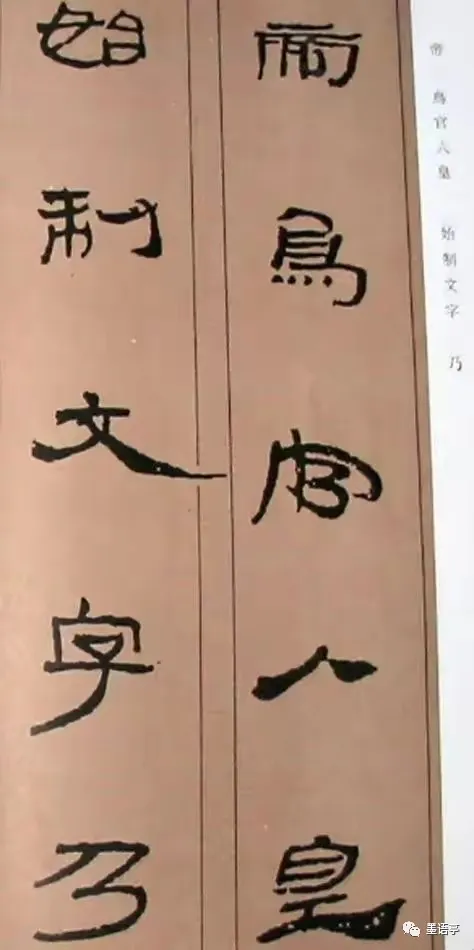 帝鳥官人皇
始制文字乃
帝 鳥官人皇 始制文字 乃
墨语亭